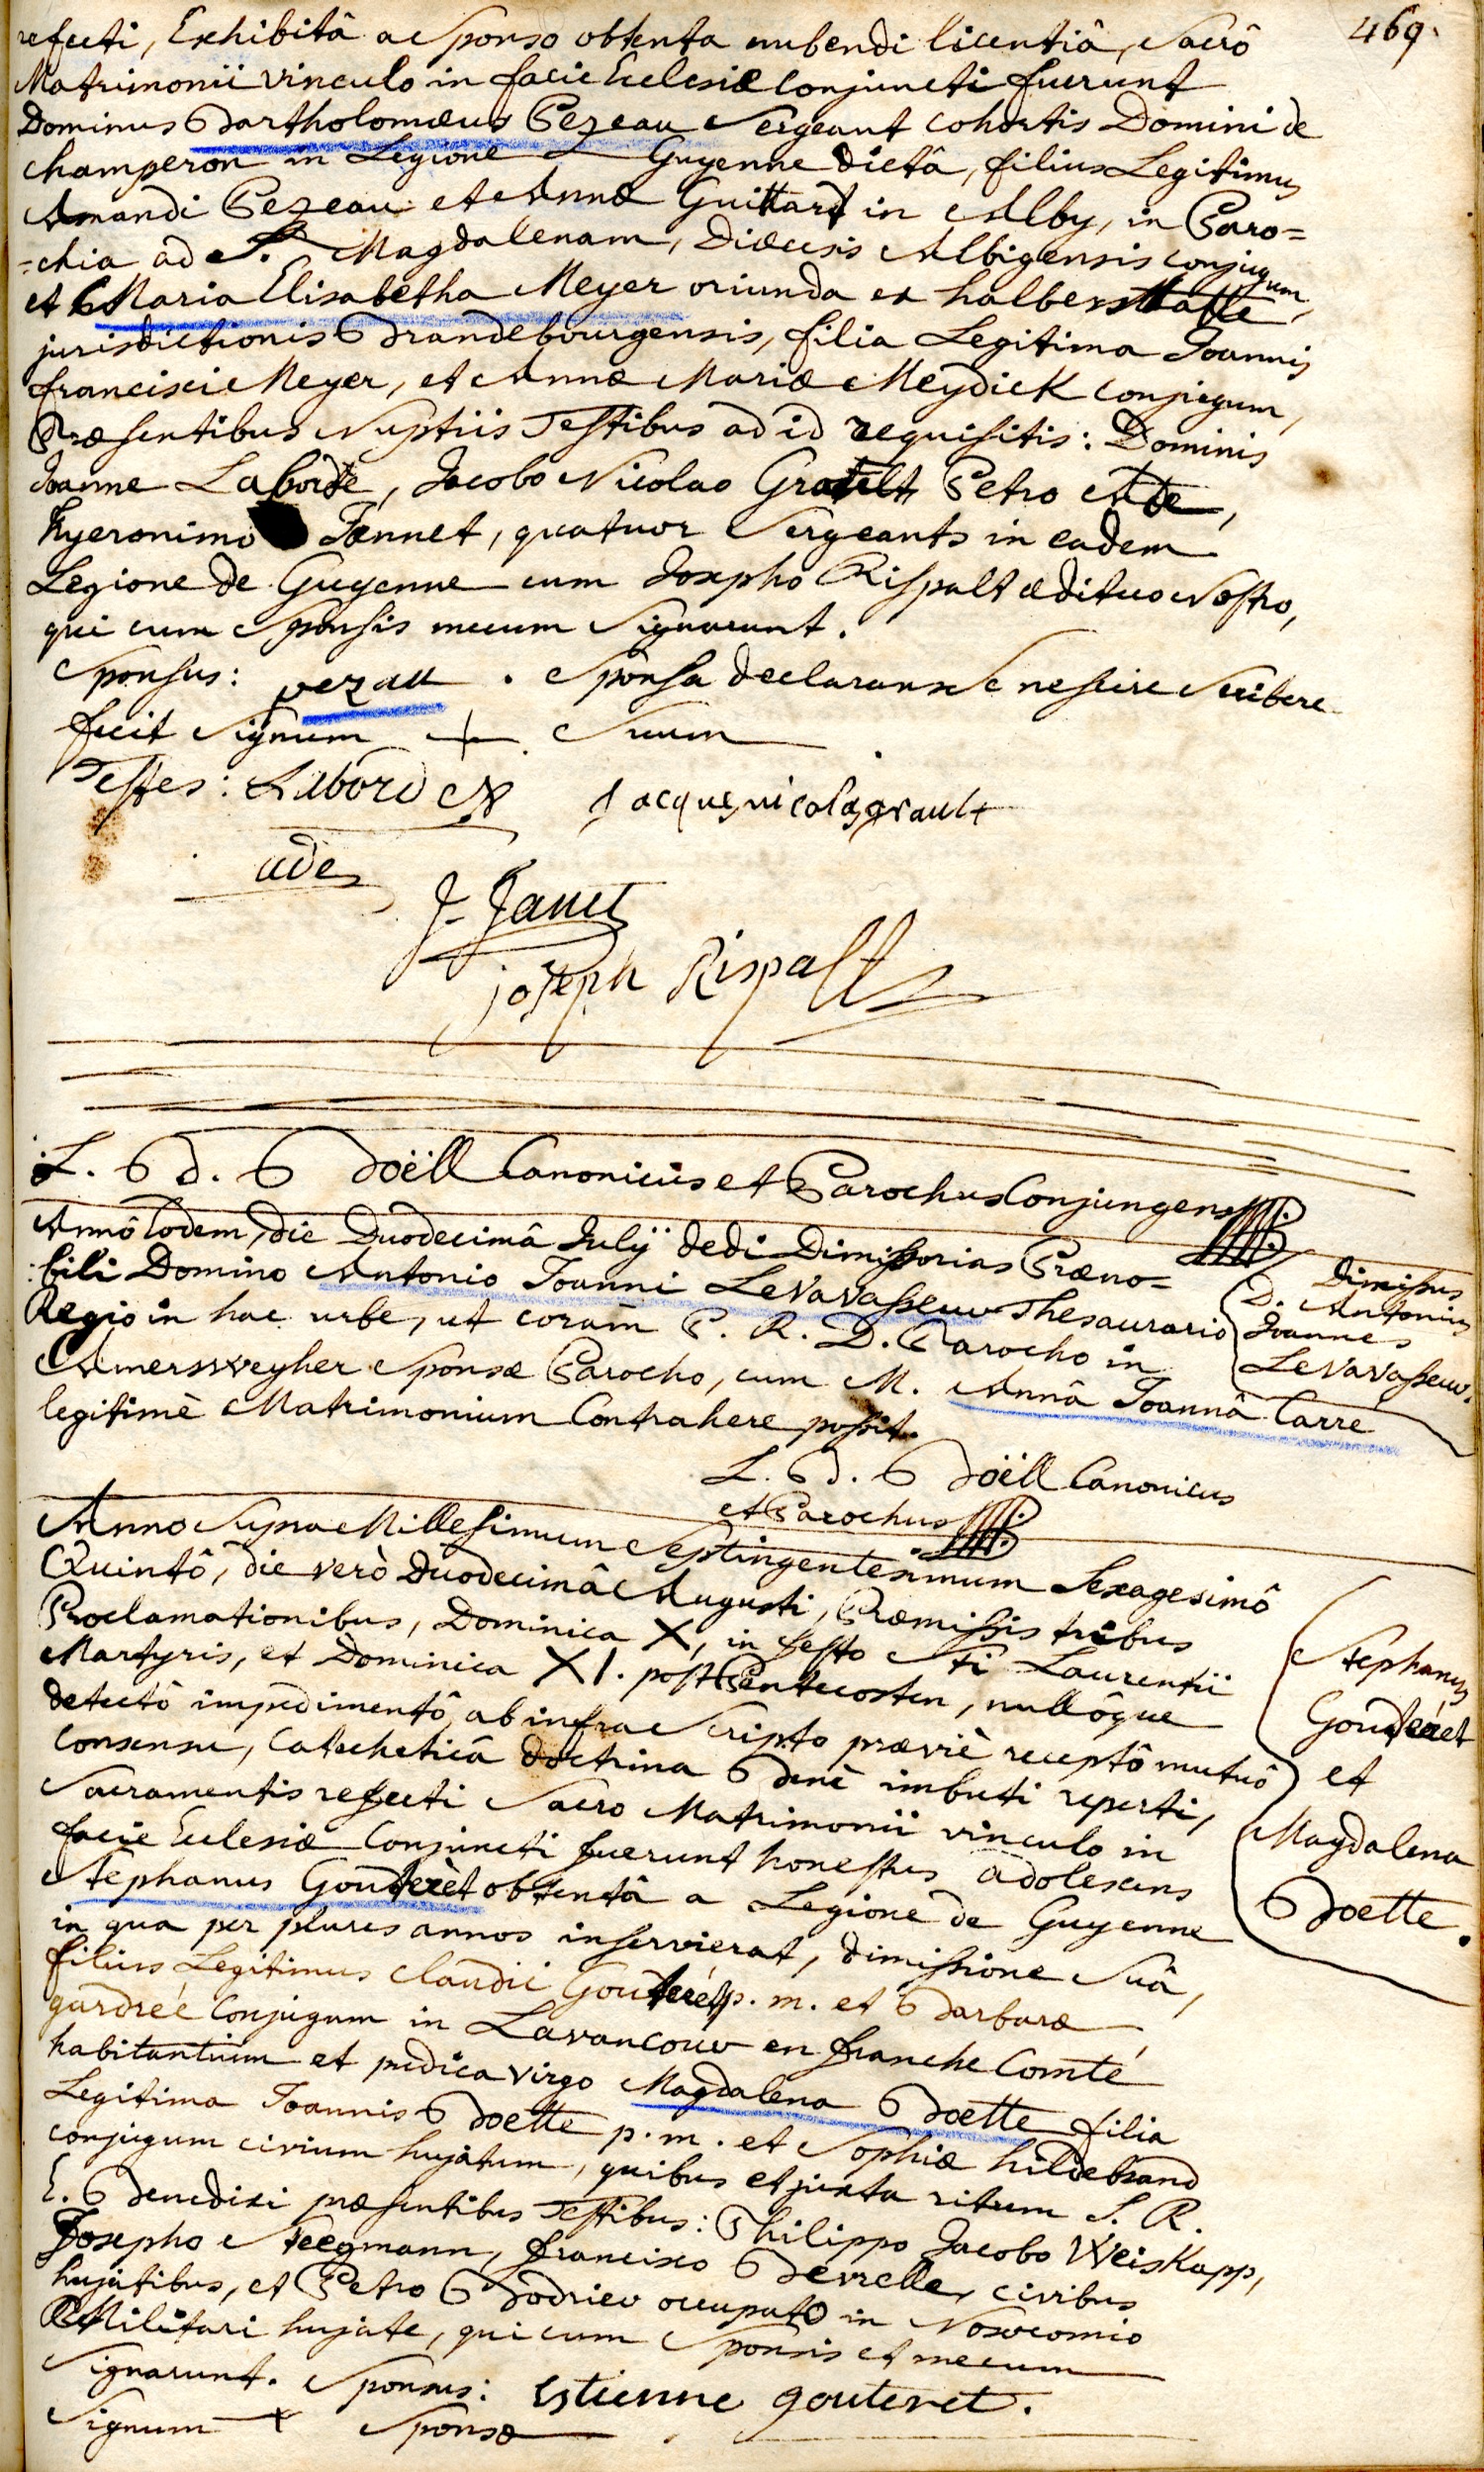 469.
refecti, Exhibitâ a Sponso obtenta nubendi licentiâ, Sacrô
Matrimonii vinculo in facie Ecclesiæ Conjuncti fuerunt
Dominus Bartholomæus Pezeau Sergeant cohortis Domini de
Champeron in Legione Guyenne dictâ, filius Legitimus
Amandi Pezeau et Annæ Guittard in Alby, in Paro=
=chia ad S. Magdalenam, Diœcesis Albigensis conjugum,
et Maria Elisabetha Meyer oriunda ex halberstatte,
jurisdictionis Brandebourgensis, filia Legitima Joannis
francisci Meyer, et Annæ Mariæ Meydick conjugum,
Præsentibus Nuptiis Testibus ad id requisitis: Dominis
Joanne Laborde, Jacobo Nicolao Petro Ade,
hyeronimo Jannet, quatuor Sergeants in eadem
Legione de Guyenne cum Josepho Rispalt ædituo Nostro,
qui cum Sponsis mecum Signarunt.
Sponsus: pezau . Sponsa declarans se nescire Scribere
fecit Signum + Suum
Testes: Labord jacque nicolas grault
ade
J. Janet
joseph Rispalt
L. B. d. B Boëll Canonicus et Parochus Conjungens
Annô Eodem, die Duodecimâ Julÿ dedi Dimissorias Præno=
:bili Domino Antonio Joanni LeVavasseur Thesaurario
Regio in hac urbe, ut coram P. R. D. Parocho in
Amersweyher Sponsæ Parocho, cum M. Annâ Joannâ Carré
legitimè Matrimonium Contrahere possit.
Dimissus
D. Antonius
Joannes
LeVavasseur.
L. B. d. B Boëll Canonicus
et Parochus
Anno Supra Millesimum Septingentesimum Sexagesimô
Quintô, die verò Duodecimâ Augusti, Præmissis tribus
Proclamationibus, Dominica X, in festo Sti Laurentii
Martyris, et Dominica XI. post Pentecosten, nullôque
detectô impedimentô, ab infra Scripto præviè receptô mutuô
Consensu, Catechetica doctrina Benè imbuti reperti,
Sacramentis refecti Sacro Matrimonii vinculo in
facie Ecclesiæ Conjuncti fuerunt honestus adolescens
Stephanus Gouterèt obtentâ a Legione de Guyenne
in qua per plures annos inservierat, dimissione Suâ,
filius Legitimus Claudii Gouteret p. m. et Barbaræ
gurdreé Conjugum in Lavancour en franche Comté
habitantium et pudica virgo Magdalena Boette filia
Legitima Joannis Boette p. m. et Sophiæ hildebrand
conjugum civium hujatum, quibus et juxta ritum S. R.
E. Benedixi præsentibus Testibus: Philippo Jacobo Weiskapp,
Josepho Steegmann, francisco Bevrelle, civibus
hujatibus, et Petro Bodrieu occupato in Nosocomio
Militari hujate, qui cum Sponsis et mecum
Signarunt. Sponsus: Estienne gouteret.
Signum + Sponsæ
Stephanus
Gouteret
et
Magdalena
Boette.